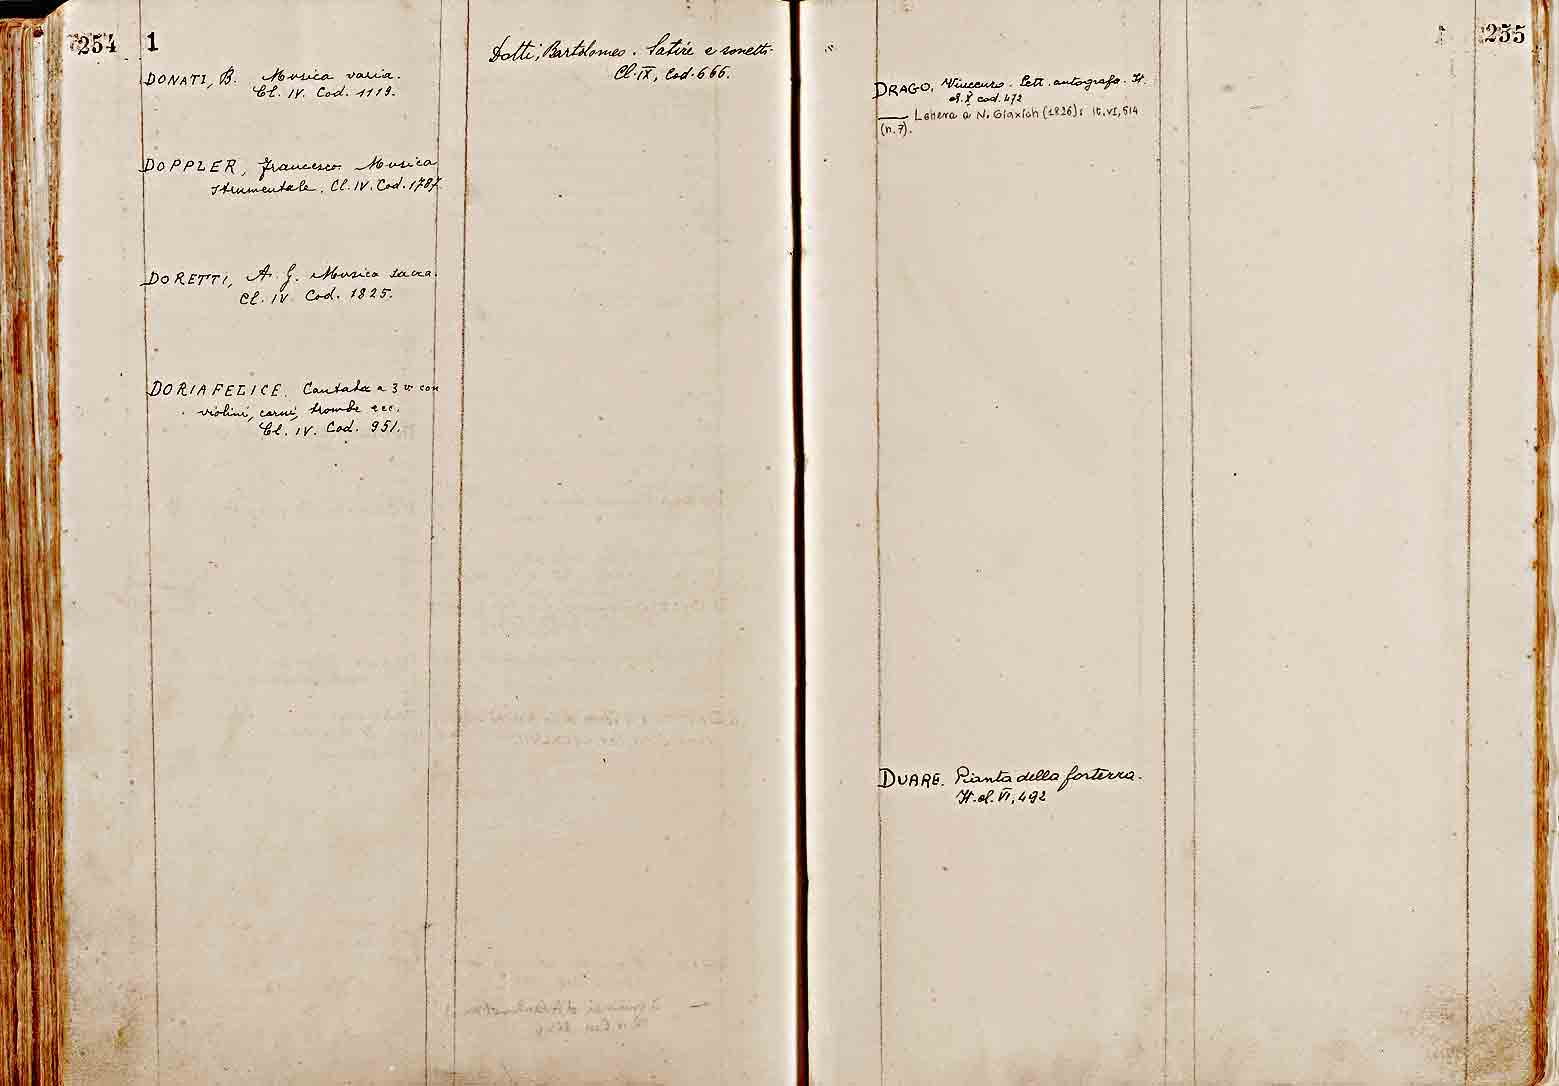 254 1
DONATI, B. Musica varia.
Cl. IV. Cod. 1119.
DOPPLER, Francesco. Musica
strumentale. Cl. IV. Cod. 1787.
DORETTI, A. G. Musica sacra.
Cl. IV. Cod. 1825.
DORIA FELICE. Cantata a 3 v. con
violini, corni, trombe ecc.
Cl. IV. Cod. 951.
Dotti, Bartolomeo. Satire e sonetti.
Cl. IX, Cod. 666.
255
DRAGO, Vincenzo. Lett. autografa. It.
cl. X cod. 472
Lettera a N. Giaxich (1826): It. VI, 514
(n. 7).
DUARE. Pianta della fortezza.
It. cl. VI, 492